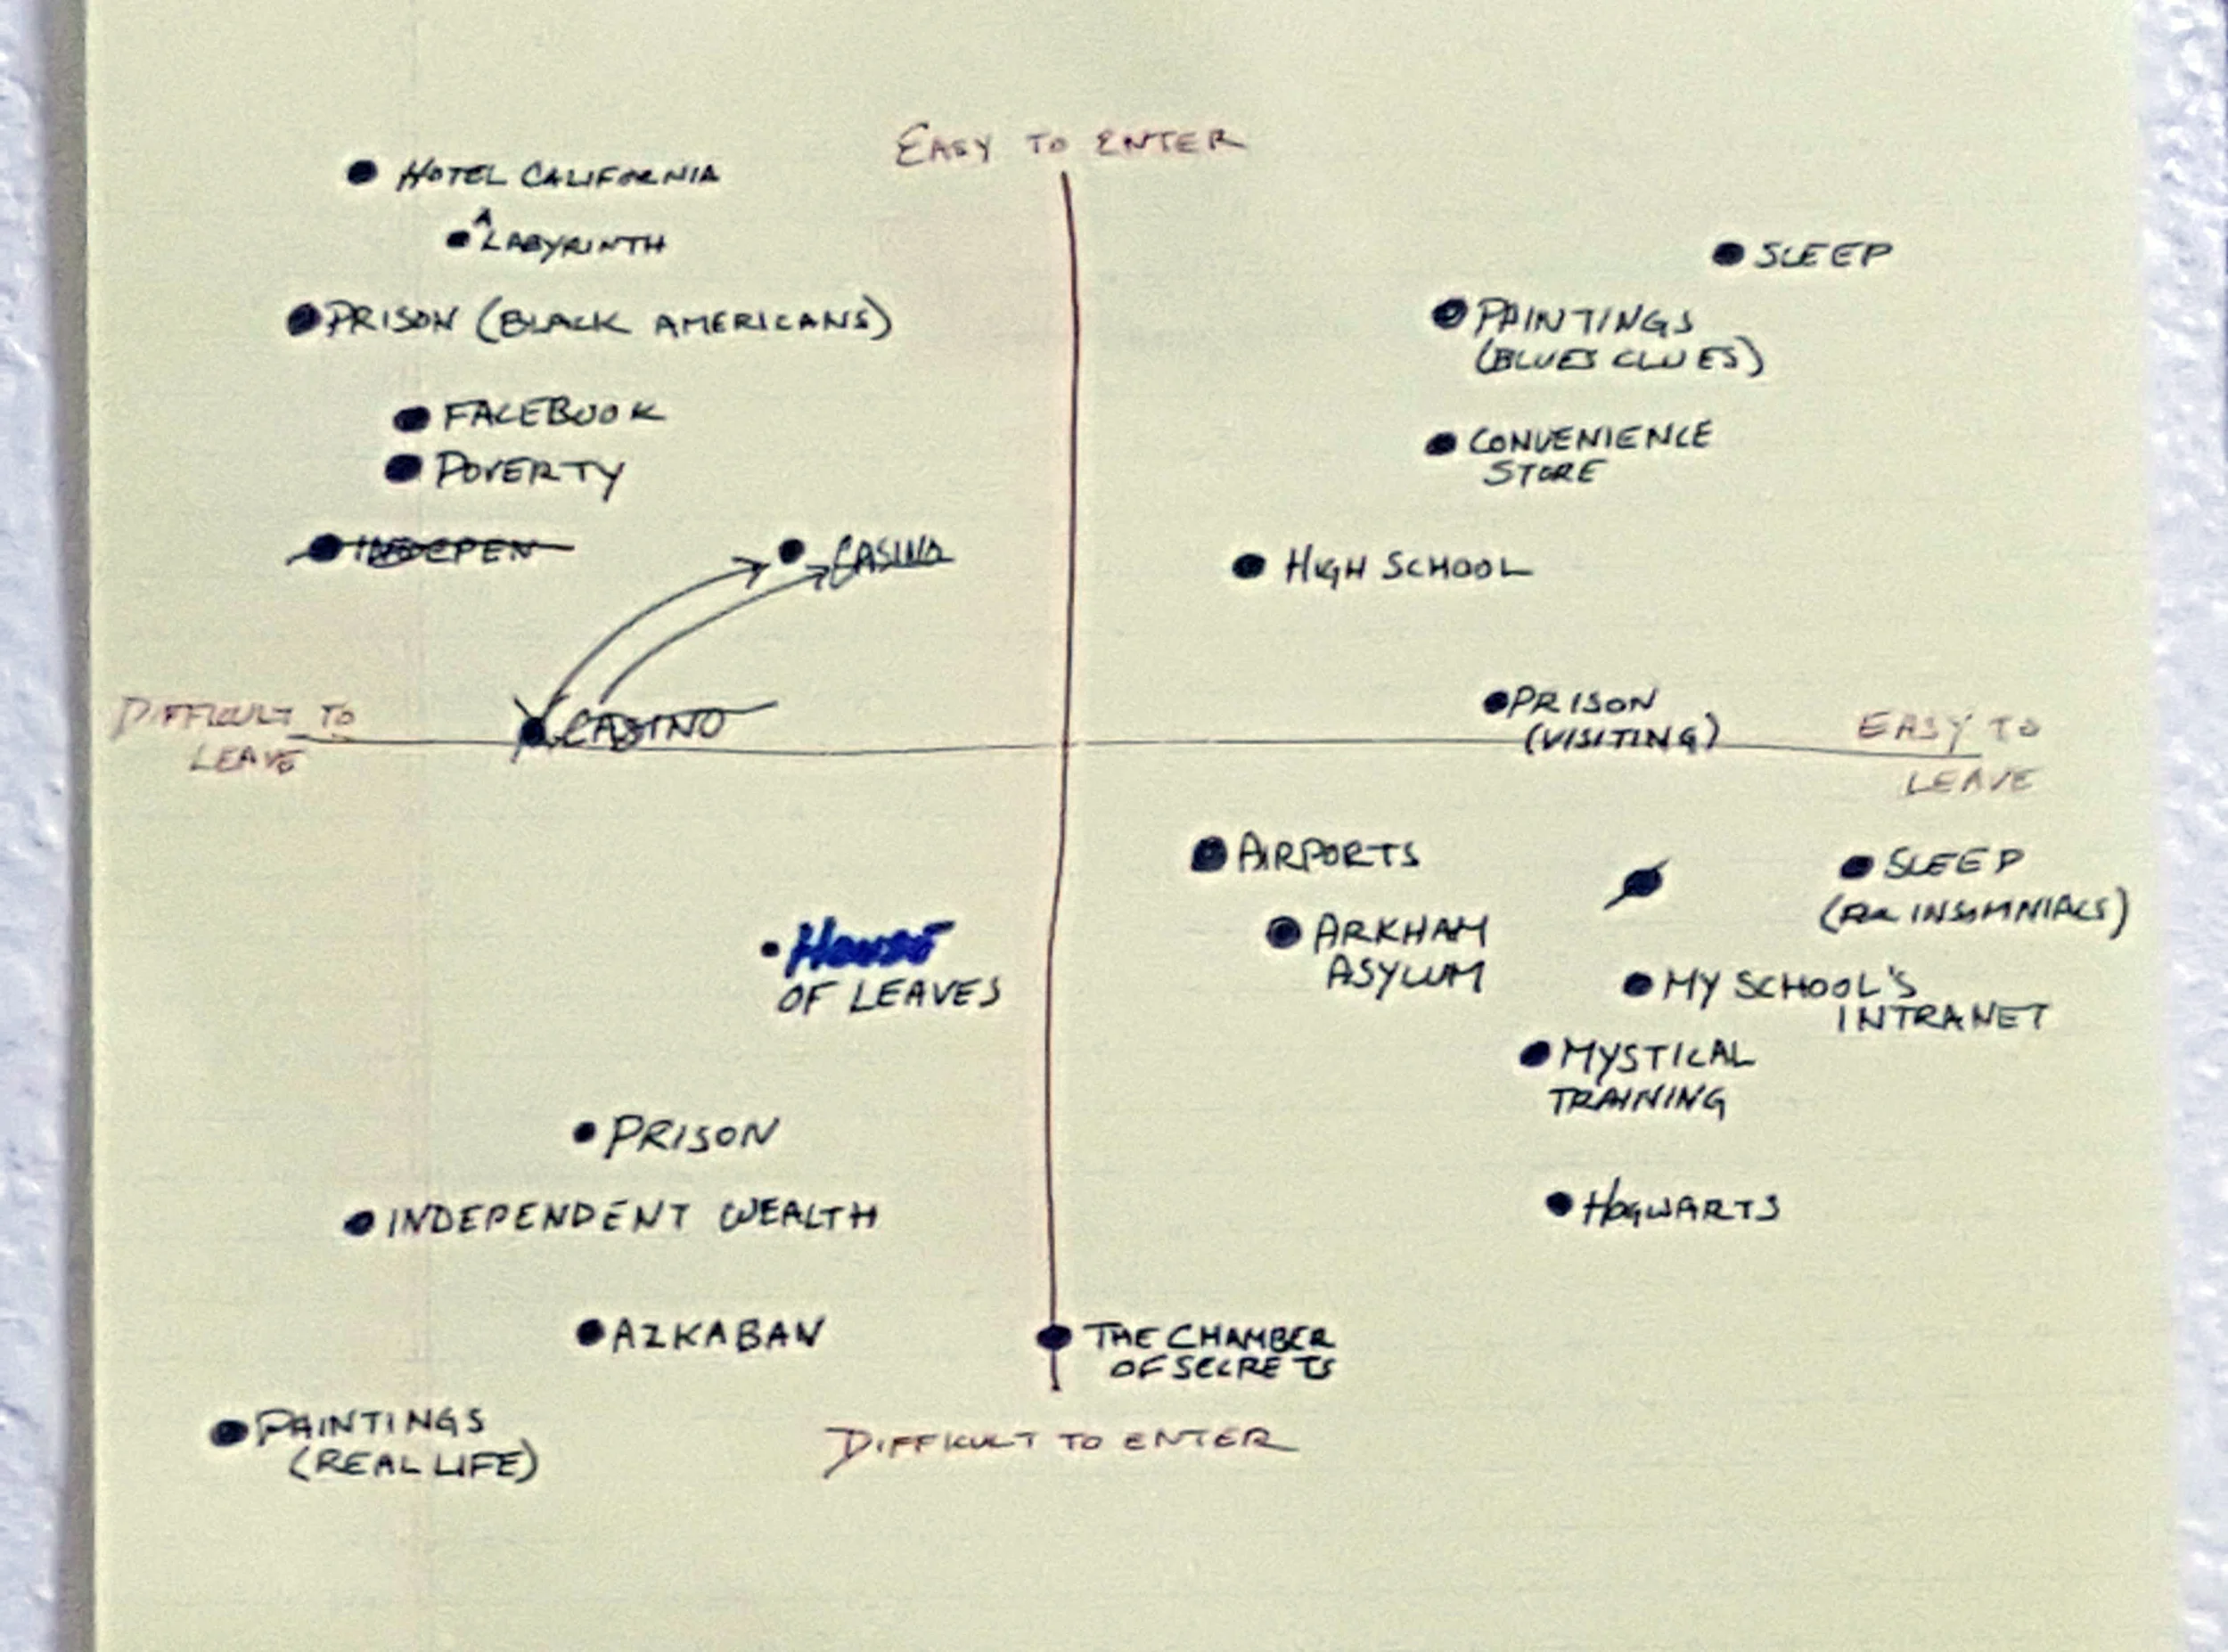 EASY TO ENTER
HOTEL CALIFORNIA
A
LABYRINTH
PRISON (BLACK AMERICANS)
FACEBOOK
POVERTY
INDEPEN
CASINO
CASINO
DIFFICULT TO
LEAVE
SLEEP
PAINTINGS
(BLUES CLUES)
CONVENIENCE
STORE
HIGH SCHOOL
PRISON
(VISITING)
EASY TO
LEAVE
HOUSE
OF LEAVES
PRISON
INDEPENDENT WEALTH
AZKABAN
PAINTINGS
(REAL LIFE)
AIRPORTS
ARKHAM
ASYLUM
SLEEP
(FOR INSOMNIACS)
MY SCHOOL'S
INTRANET
MYSTICAL
TRAINING
HOGWARTS
THE CHAMBER
OF SECRETS
DIFFICULT TO ENTER